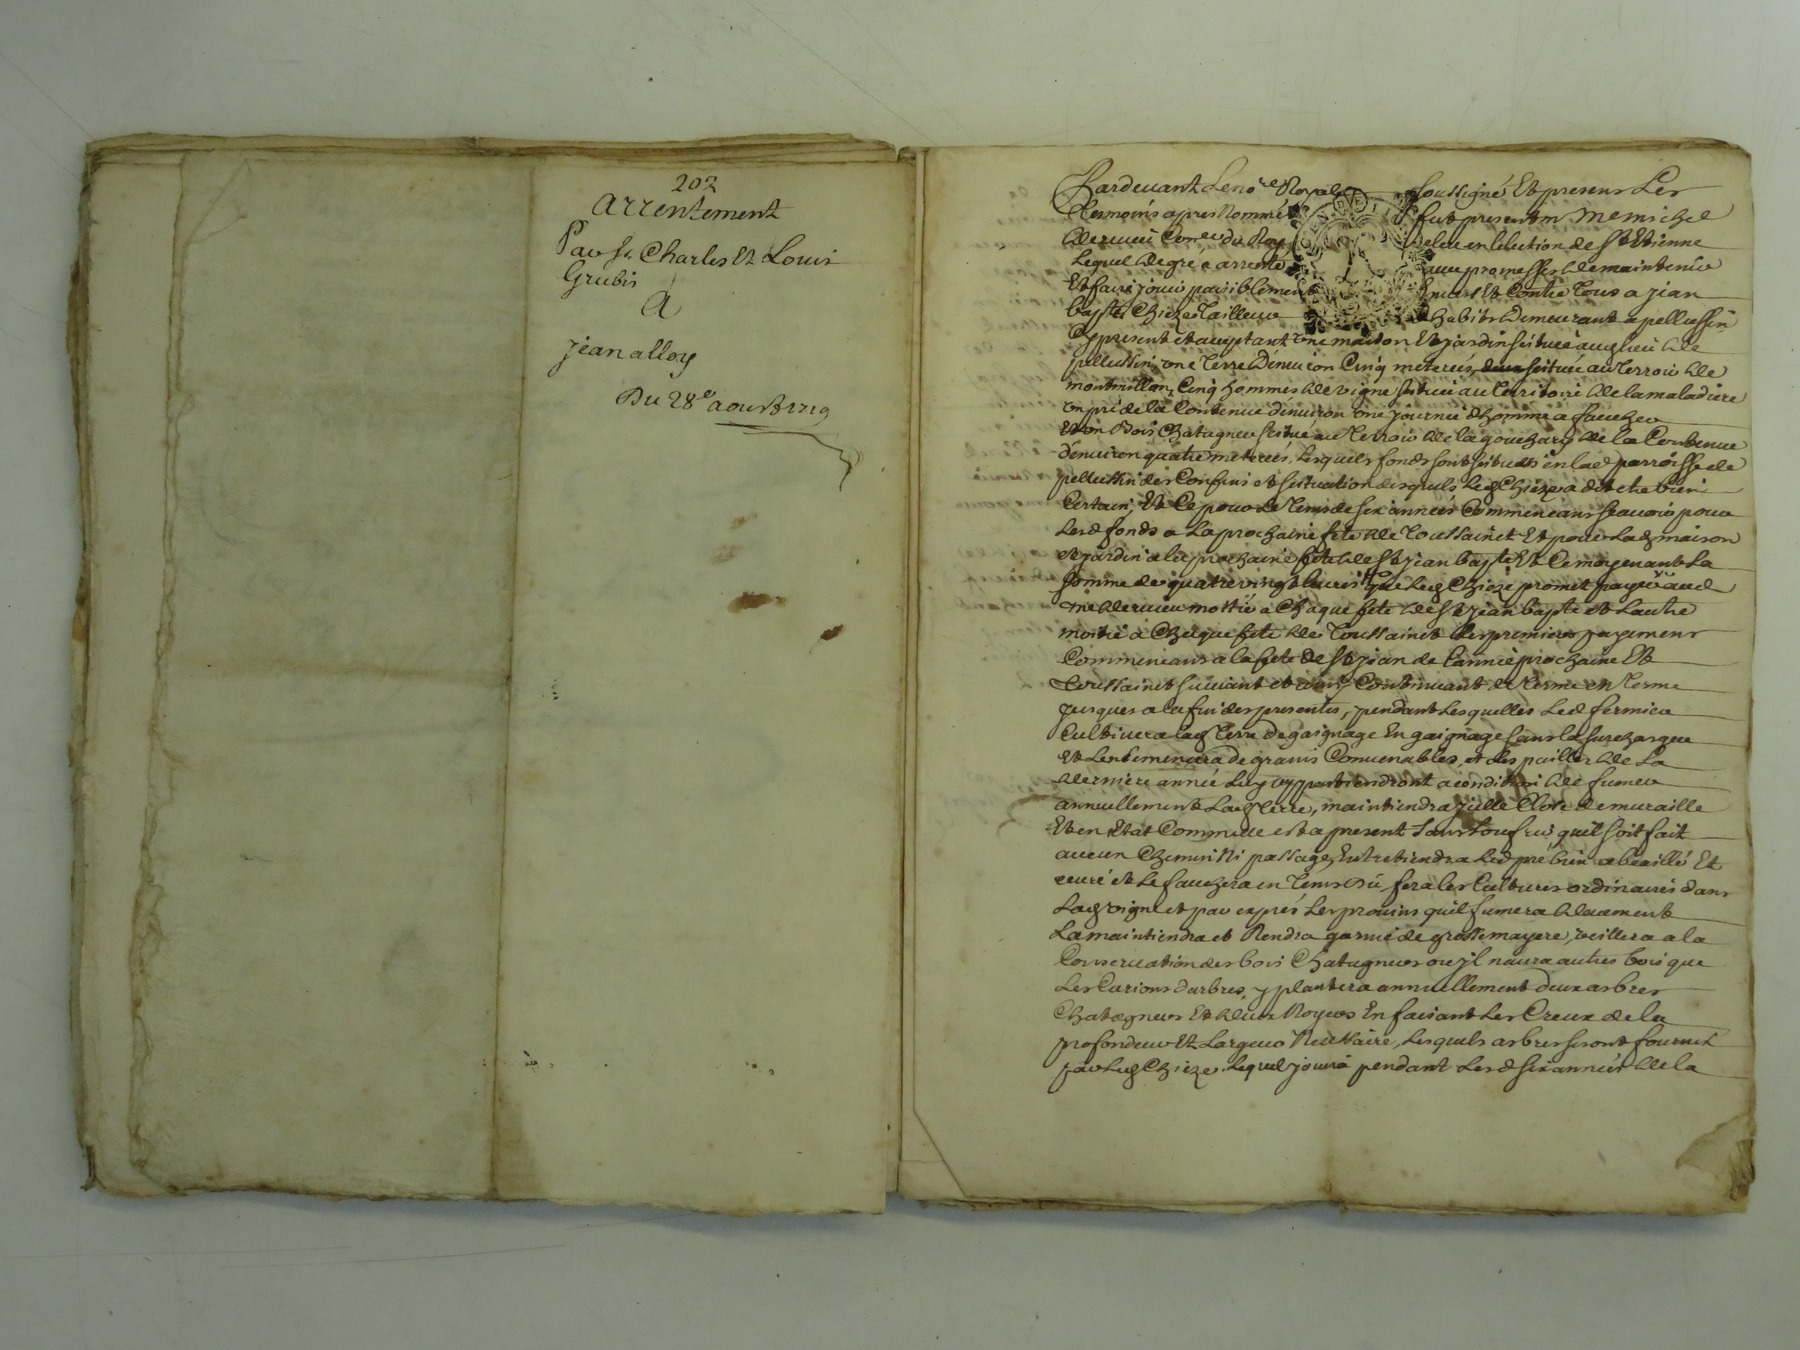 202
arrentement
Par Sr. Charles Et Louis
Grubis
A
jean alloy
Du 28e aoust 1719
Pardevant Le no.re Royal soussigné Et presens Les
Tesmoins apres Nommés fut present Me michel
Conser du Roy elu en Lelection de St Etienne
Lequel de gré a arrenté avec promesse de maintenir
Et faire jouir paisiblement Envers Et Contre Tous a jean
baptte Chieze Tailleur d'habits Demeurant a pellussin
Cy present et acceptant une maison Et jardin scitués au lieu de
pellussin, une Terre D'environ Cinq meterés, scituée au Terroir de
montmillon, Cinq hommes de vigne scitués au Territoire de la maladiere
un pré de la Contenue d'environ une journée d'homme a faucher
Et un Bois Chatagner scitué au Terroir de la de la Contenue
d'environ quatre meterées, Lesquels fonds sont scitués en lad parroisse de
pellussin des Confins et scituation desquels Led Chieze a dit etre bien
Certain, Et Ce pour Le Tems de six années Commencans scavoir pour
Lesd fonds a La prochaine fete de Toussainct Et pour Lad maison
et jardin a la prochaine fete de St jean baptte Et Ce moyenant La
somme de quatre vingt livres que Led Chieze promet payer aud
me moitié a Chaque fete de St jean baptte et Lautre
moitié a Chaque fete de Toussainct Les premiers payemens
Commencans a la fete de St jean de Lannée prochaine Et
Toussainct suivant et ainsy Continuant de Terme en Terme
jusques a la fin des presentes, pendant Lesquelles Led fermier
Cultivera lad Terre de gaignage En gaignage sans la surcharger
et Lensemencera de grains Convenables, et Les pailles de La
derniere année Luy appartiendront a condition de fumer
annuellement Lad Terre, maintiendra jcelle Close de muraille
Et en Etat Comme elle est a present sans soufrir quil soit fait
aucun Chemin Ni passage, Entretiendra Led pré bien abeaillé Et
Curé et Le fauchera en Tems Dû, fera les Cultures ordinaires dans
Lad vigne et par exprés Les provins quil fumera
La maintiendra et Rendra garnie de grosse mayere, veillera a la
Conservation des bois Chatagners ou jl n'aura autres bois que
Les d'arbres, y plantera annuellement deux arbres
Chatagners Et deux Noyers En faisant Les Creux de la
profondeur Et Largeur Necessaire, Lesquels arbres seront fournis
par Led Chieze. Lequel jouira pendant Lesd six années de la